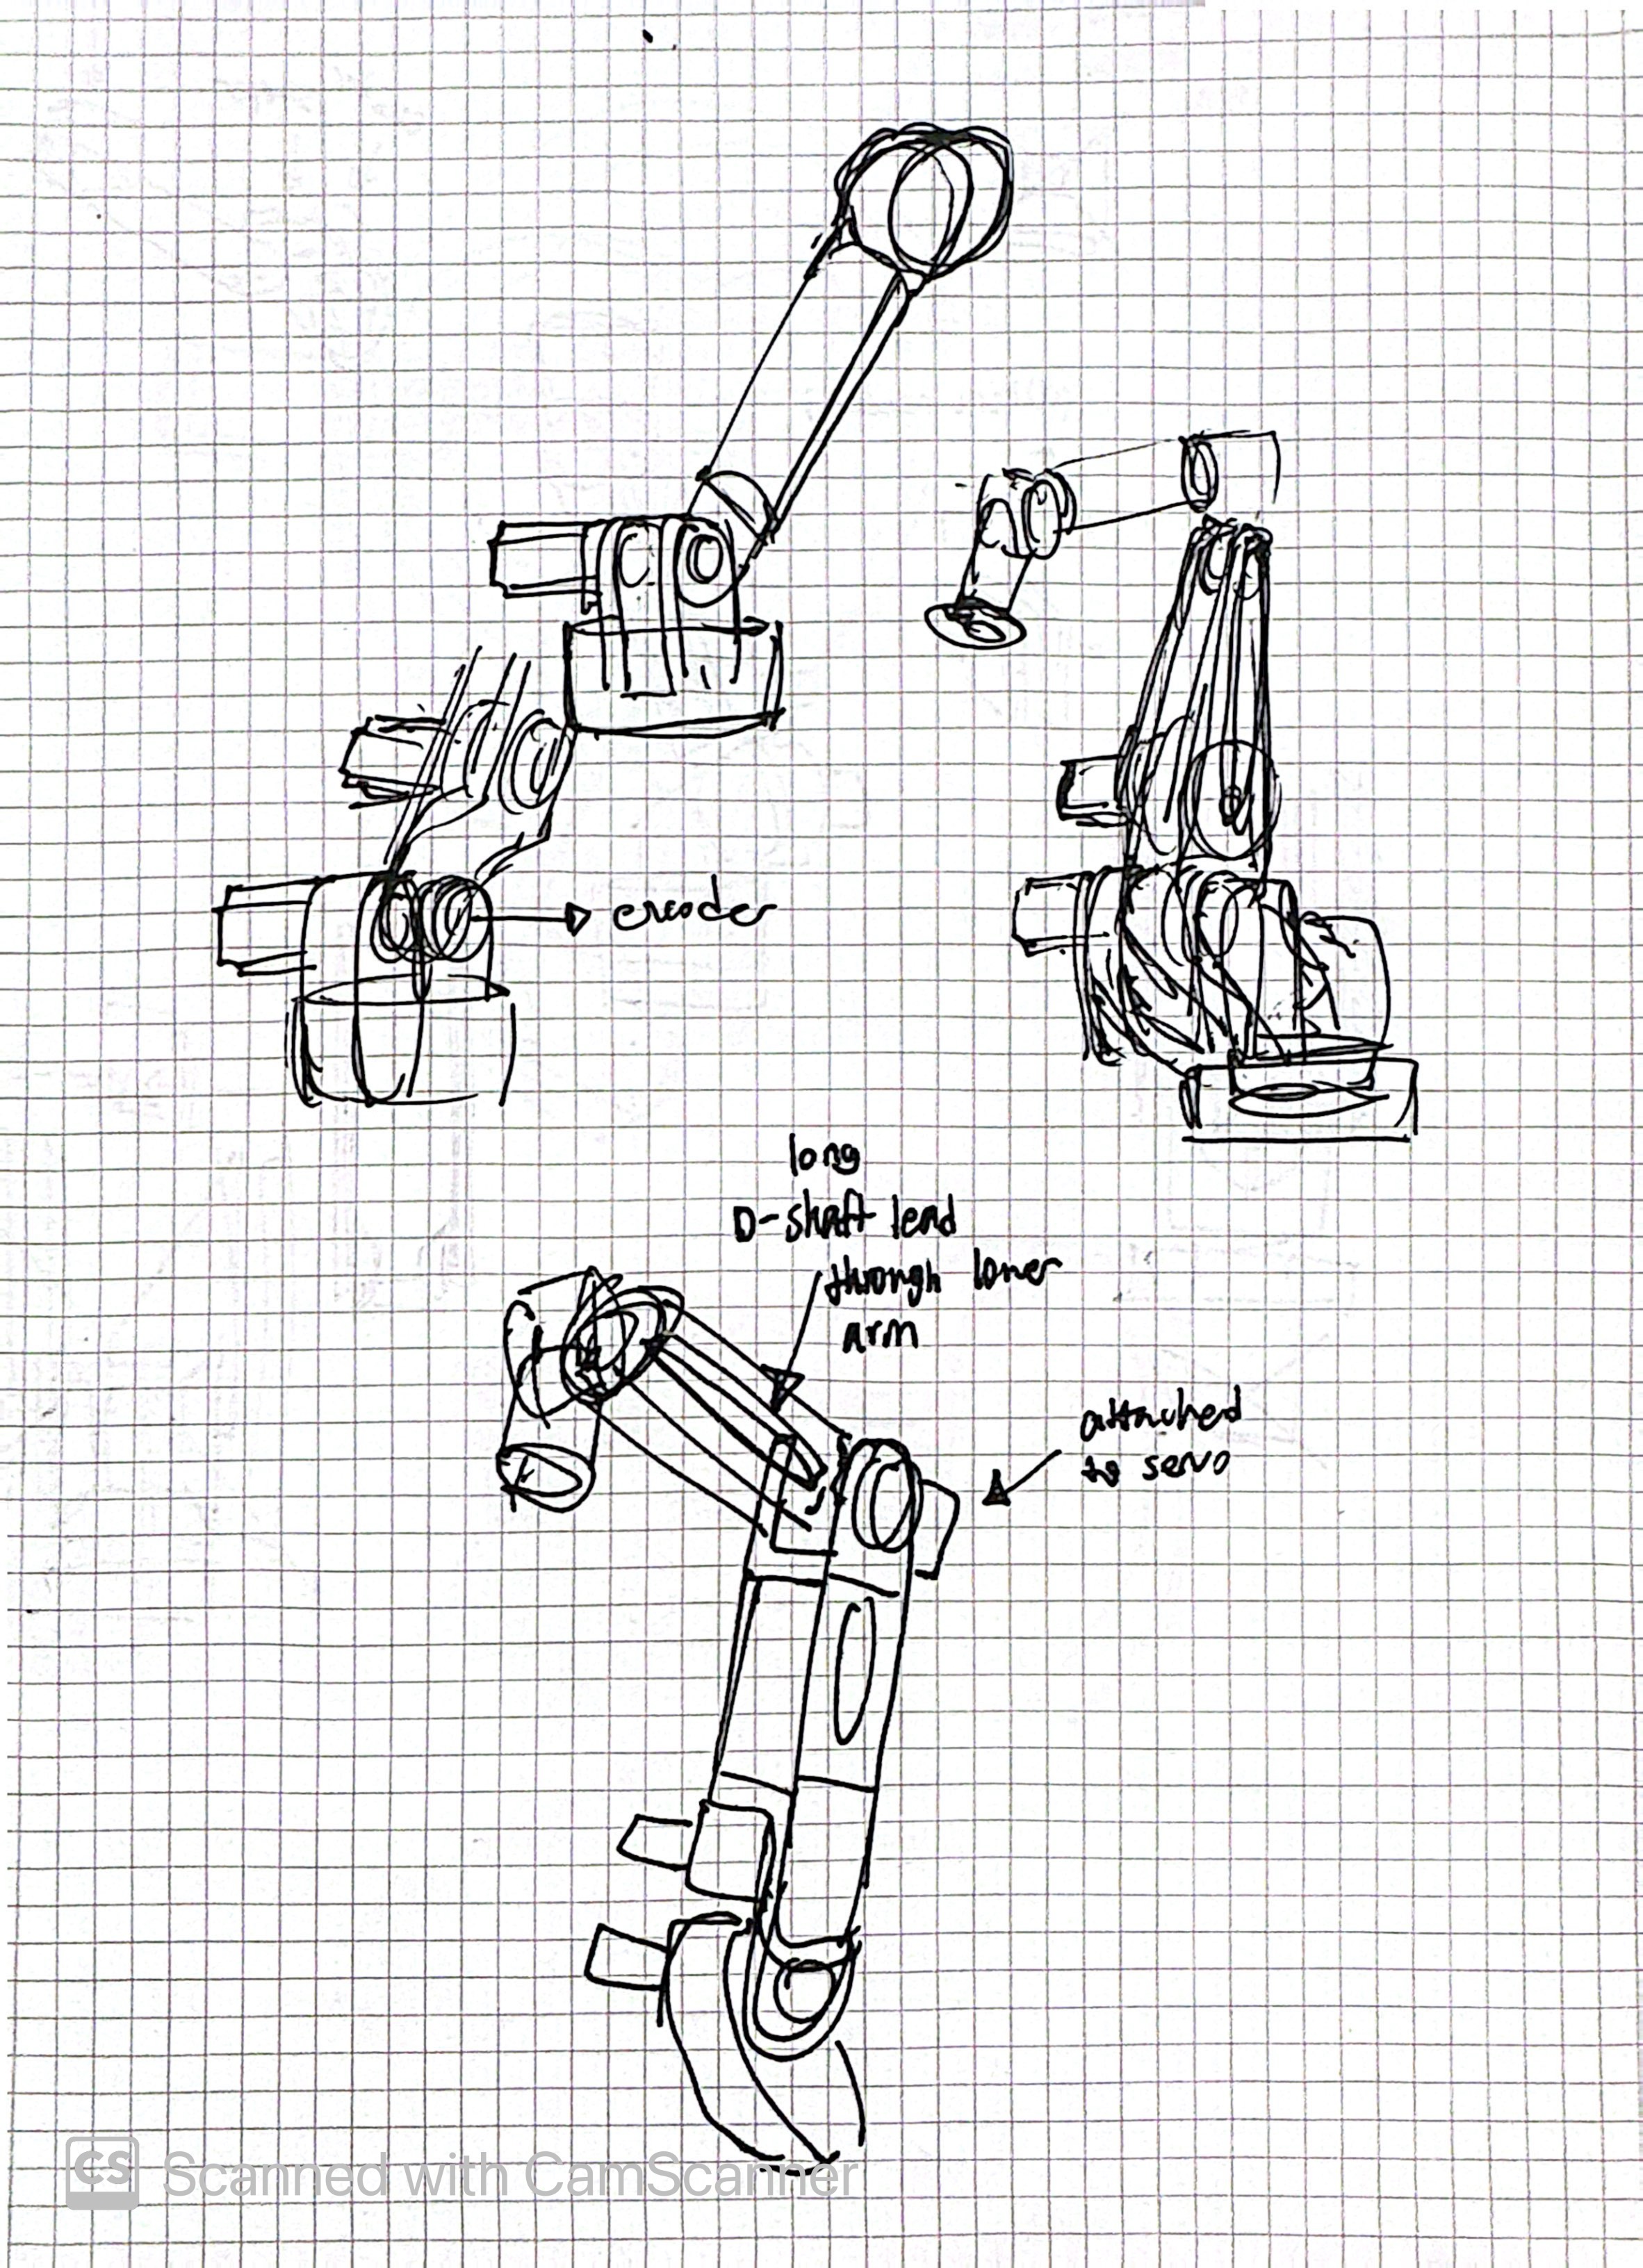 encoder
long
D-shaft lead
through lower
arm
attached
to servo
CS Scanned with CamScanner